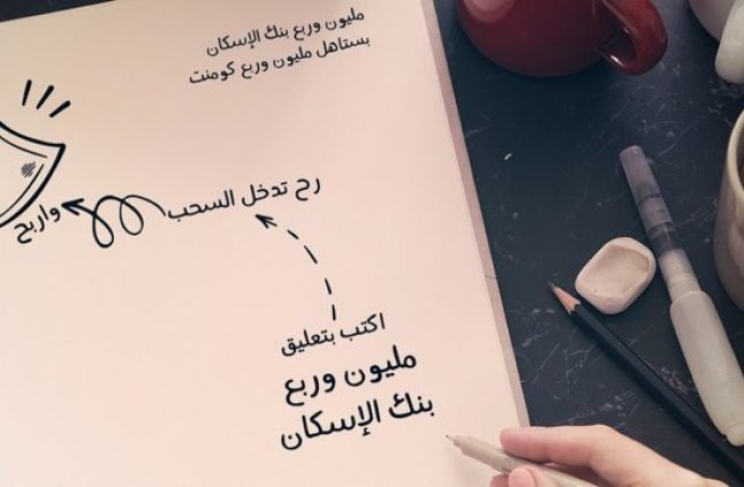 مليون وربع بنك الإسكان
بستاهل مليون وربع كومنت
رح تدخل السحب
واربح
اكتب بتعليق
مليون وربع
بنك الإسكان